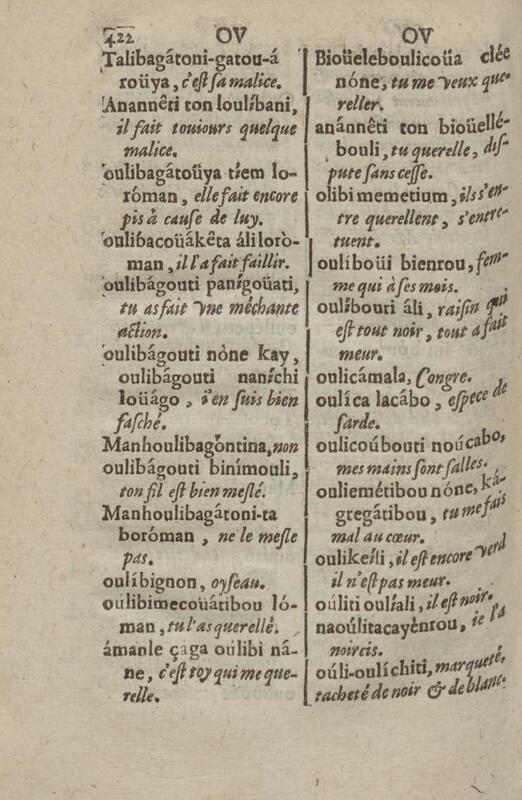 422 OV OV
Talibagátoni-gatou-á
roüya, c'eſt ſa malice.
Anannêti ton loulíbani,
il fait touiours quelque
malice.
oulibagátoüya tíem lo-
róman, elle fait encore
pis à cauſe de luy.
oulibacoüákêta áli lorò-
man, il l'a fait faillir.
oulibágouti panígoüati,
tu as fait vne méchante
action.
oulibágouti nòne kay,
oulibágouti naníchi
loüágo, i'en ſuis bien
faſché.
Manhoulibagóntina, non
oulibágouti binímouli,
ton fil eſt bien meſlé.
Manhoulibagátoni-ta
boróman, ne le meſle
pas.
oulíbignon, oyſeau.
oúlibimecoüátibou ló-
man, tu l'as querellé.
ámanle çaga oúlibi ná-
ne, c'eſt toy qui me que-
relle.
Bioüeleboulicoüa clée
nóne, tu me veux que-
reller.
anánnêti ton bioüellé-
bouli, tu querelle, diſ-
pute ſans ceſſe.
olibi memetium, ils s'en-
tre querellent, s'entre-
tuent.
oulíboüi bienrou, fem-
me qui à ſes mois.
oulíbouti áli, raiſin qui
eſt tout noir, tout a fait
meur.
oulicámala, Congre.
oulíca lacábo, eſpece de
ſarde.
oulicoúbouti noúcabo,
mes mains ſont ſalles.
ouliemétibou nóne, ká-
gregátibou, tu me fais
mal au cœur.
oulikeíli, il eſt encore verd
il n'eſt pas meur.
oúliti oulíali, il eſt noir.
naoúlitacayénrou, ie l'a
noircis.
oúli-oulíchiti, marqueté,
tacheté de noir & de blanc.